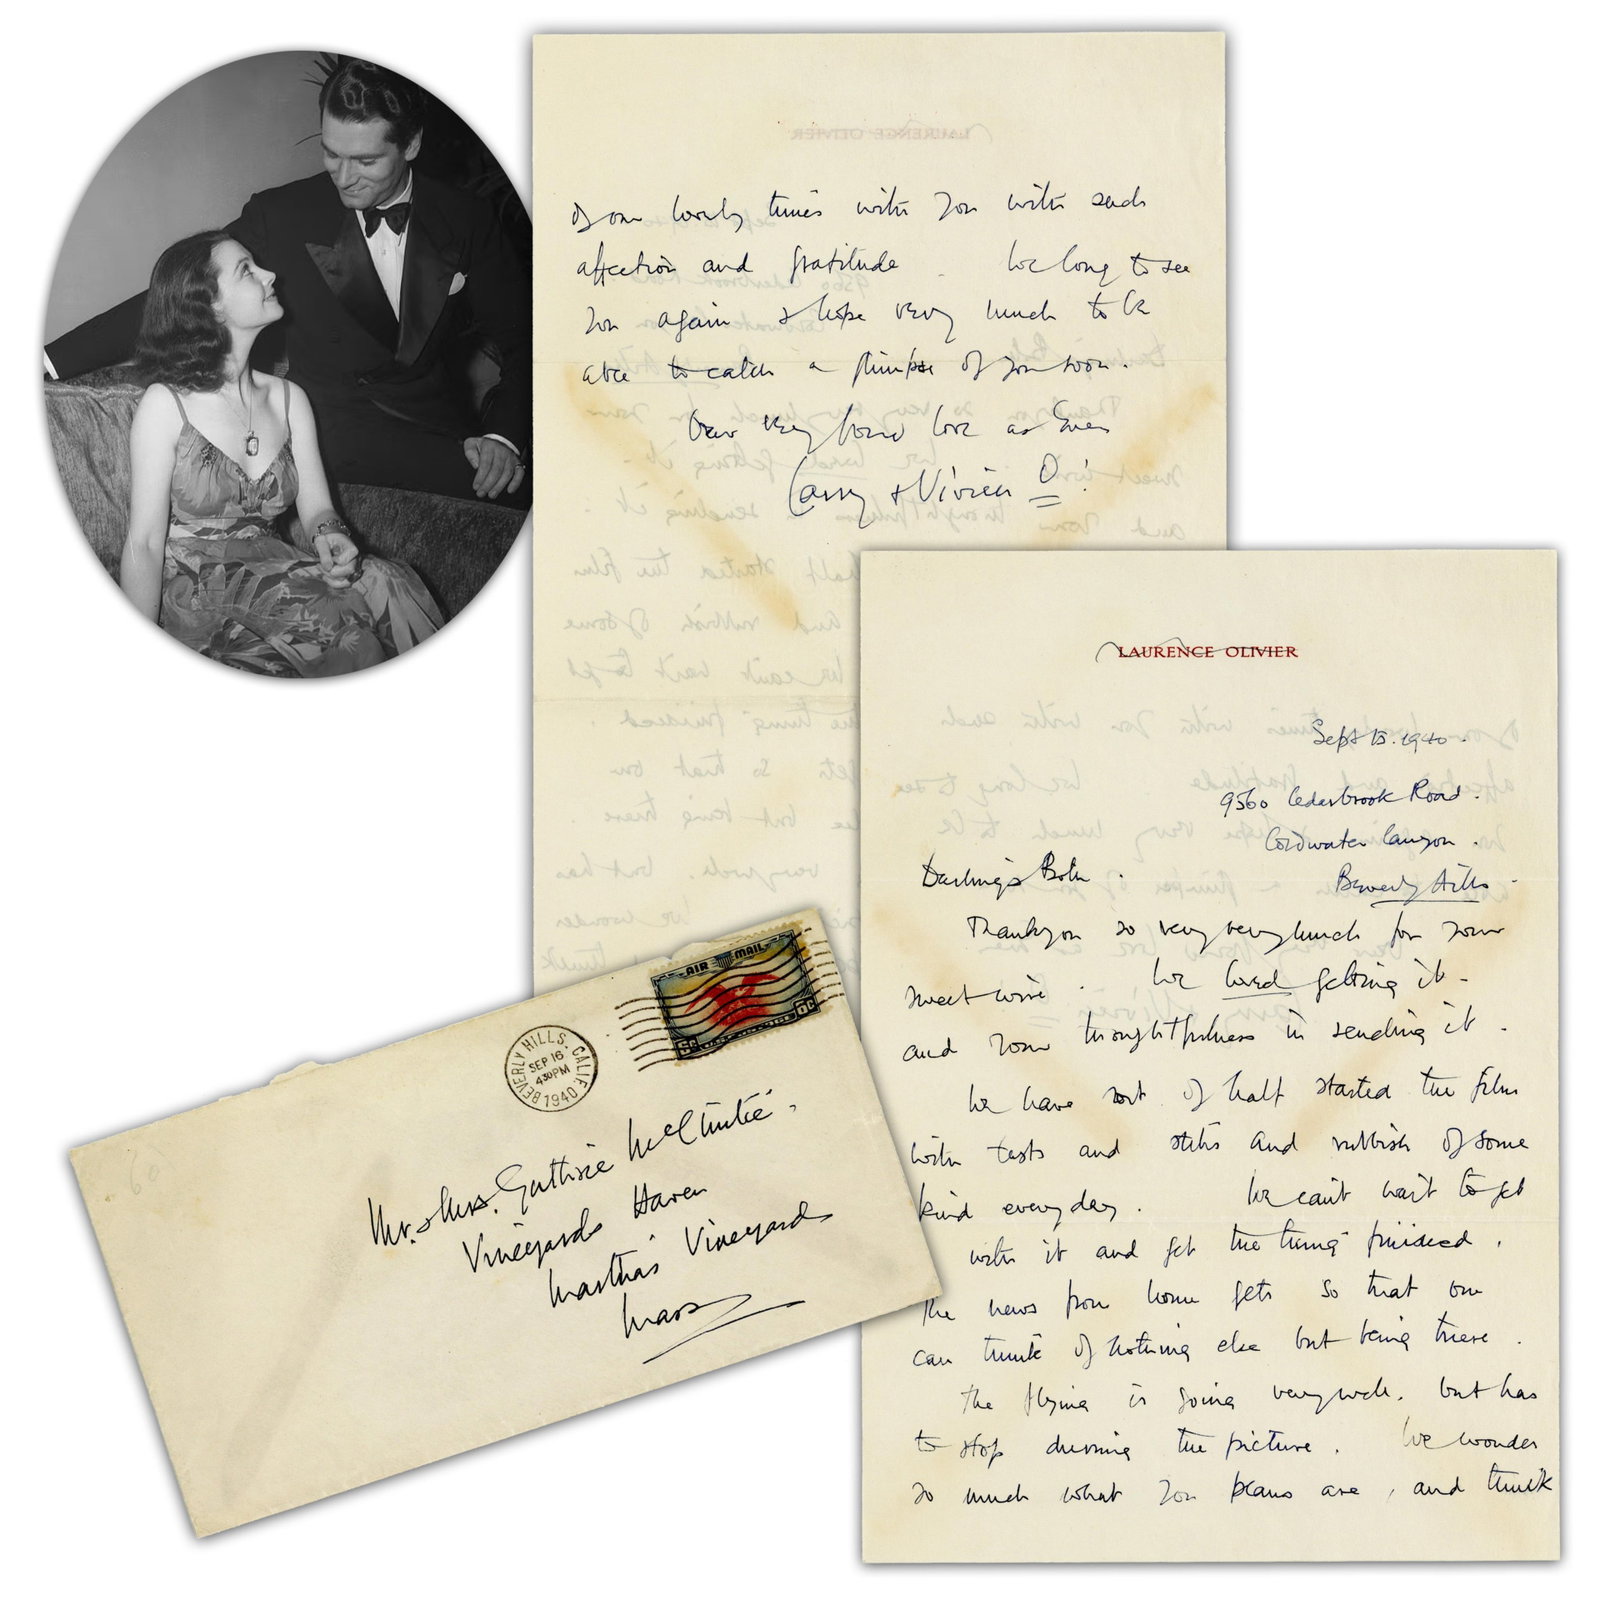 LAURENCE OLIVIER
Sept 15. 1940.
9560 Cedarbrook Road.
Coldwater Canyon.
Beverly Hills.
Darlings Both.
Thankyou so very very much for your
sweet wire. We loved getting it -
and your thoughtfulness in sending it.
We have sort of half started the film
with tests and stills and rubbish of some
kind every day. We can't wait to get
with it and get the thing finished.
The news from home gets so that one
can think of nothing else but being there.
The flying is going very well, but has
to stop during the picture. We wonder
so much what your plans are, and think
of our lovely times with you with such
affection and gratitude. We long to see
you again & hope very much to be
able to catch a glimpse of you soon.
Our very fond love as Ever
Larry & Vivien O!
AIR MAIL
6c 6c
BEVERLY HILLS, CALIF.
SEP 16
430PM
1940
Mr. & Mrs. Guthrie McClintic.
Vineyards Haven
Martha's Vineyards
Mass